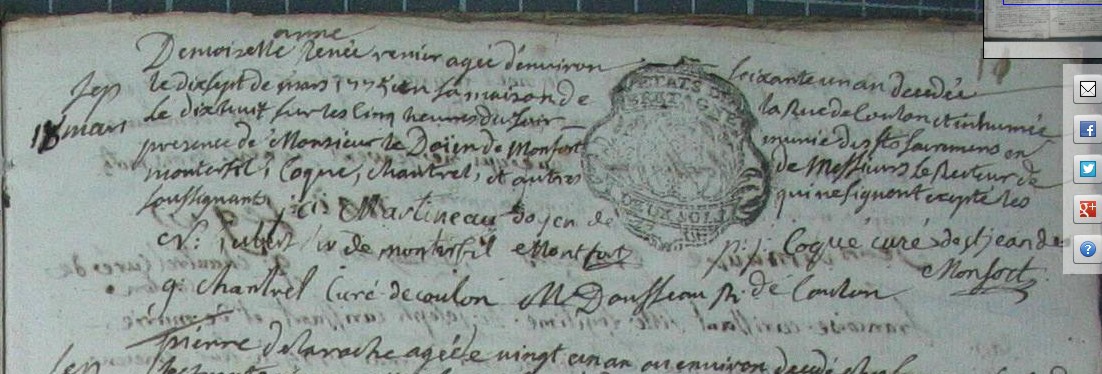 anne
Demoiselle Renée renier agée d'environ soixante un an decedée
Sep le dix sept de mars 1775 en sa maison de la Rue de Coulon et inhumée
18 mars le dix huit sur les cinq heures du soir munie des sts sacremens en
presence de Monsieur le Doien de Monfort de Messieurs le Recteur de
monterfil, Coque, chantrel, et autres qui ne signent excepté les
soussignants j: c: Martineau doyen de
Monfort
ETATS DE BRETAGNE
DEUX SOLS
r. de monterfil p: j: Coqué curé de st jean de
Monfort
g. chantrel Curé de coulon M Dousseau R. de Coulon
Pierre delaroche agée de vingt un an ou environ decedé
Sep